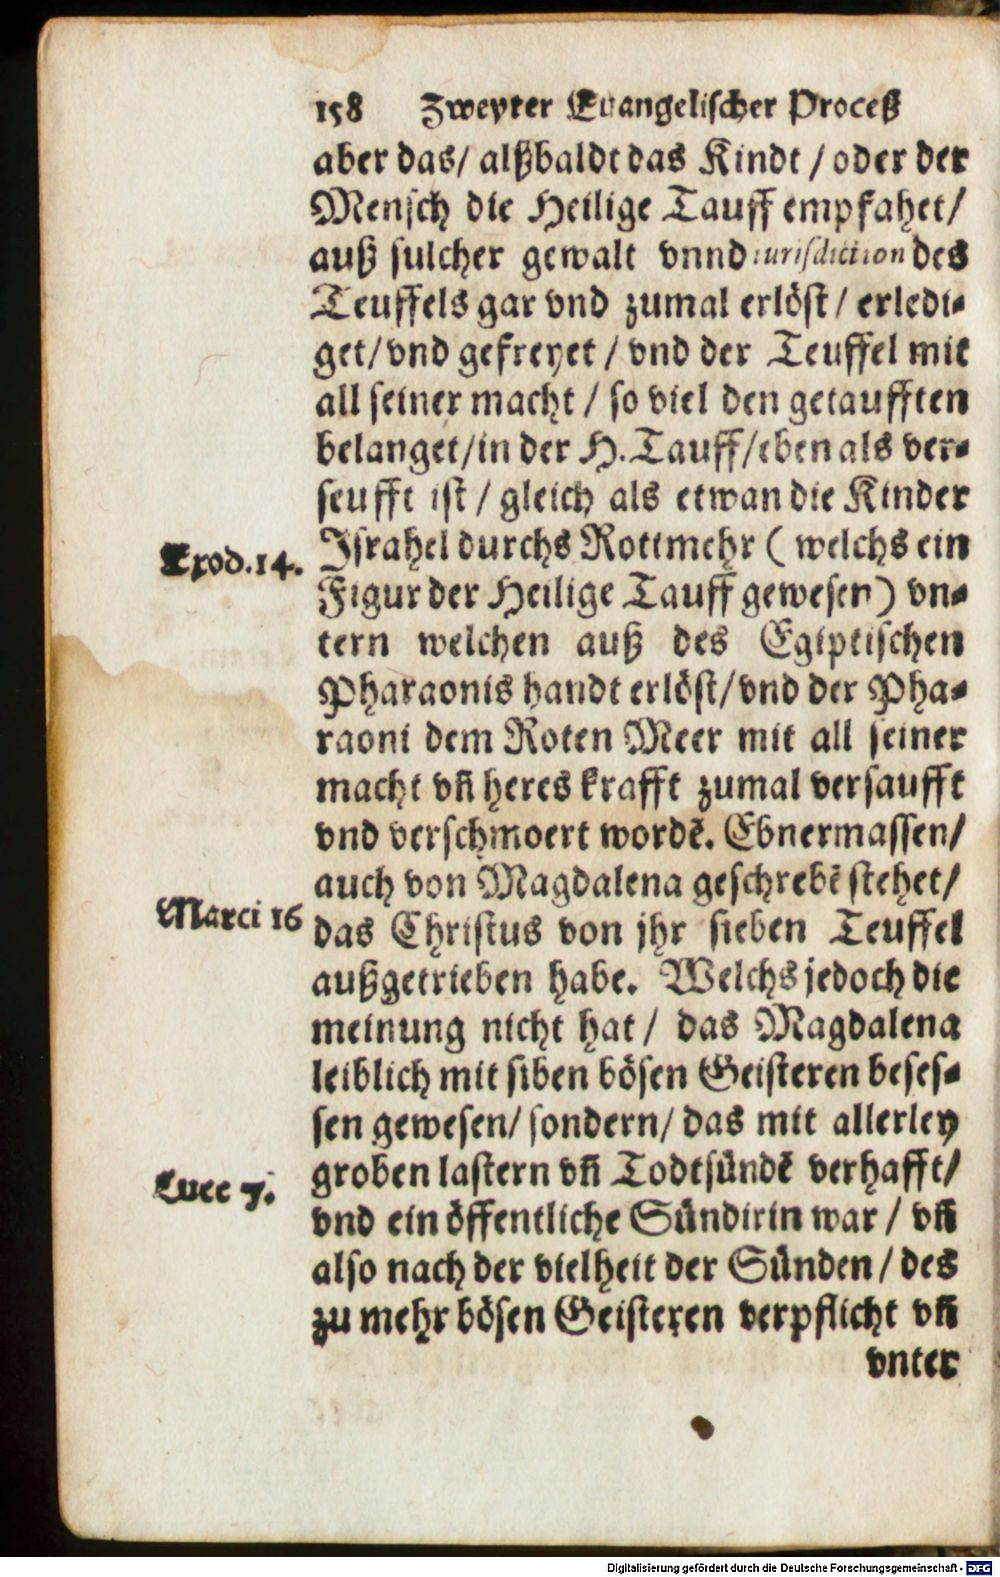 158 Zweyter Euangelischer Proceß
aber das/ alßbaldt das Kindt / oder der
Mensch die Heilige Tauff empfahet/
auß sulcher gewalt vnnd iurisdiction des
Teuffels gar vnd zumal erlöst / erledi-
get/ vnd gefreyet / vnd der Teuffel mit
all seiner macht / so viel den getaufften
belanget/ in der H. Tauff/ eben als ver-
seufft ist / gleich als etwan die Kinder
Exod. 14.
Israhel durchs Rottmehr ( welchs ein
Figur der Heilige Tauff gewesen ) vn-
tern welchen auß des Egiptischen
Pharaonis handt erlöst/ vnd der Pha-
raoni dem Roten Meer mit all seiner
macht vñ heres krafft zumal versaufft
vnd verschmoert wordē. Ebnermassen/
auch von Magdalena geschrebē stehet/
Marci 16
das Christus von jhr sieben Teuffel
außgetrieben habe. Welchs jedoch die
meinung nicht hat / das Magdalena
leiblich mit siben bösen Geisteren beses-
sen gewesen/ sondern/ das mit allerley
groben lastern vñ Todtsündē verhafft/
Luce 7.
vnd ein öffentliche Sündirin war / vñ
also nach der vielheit der Sünden / des
zu mehr bösen Geisteren verpflicht vñ
vnter
Digitalisierung gefördert durch die Deutsche Forschungsgemeinschaft - DFG